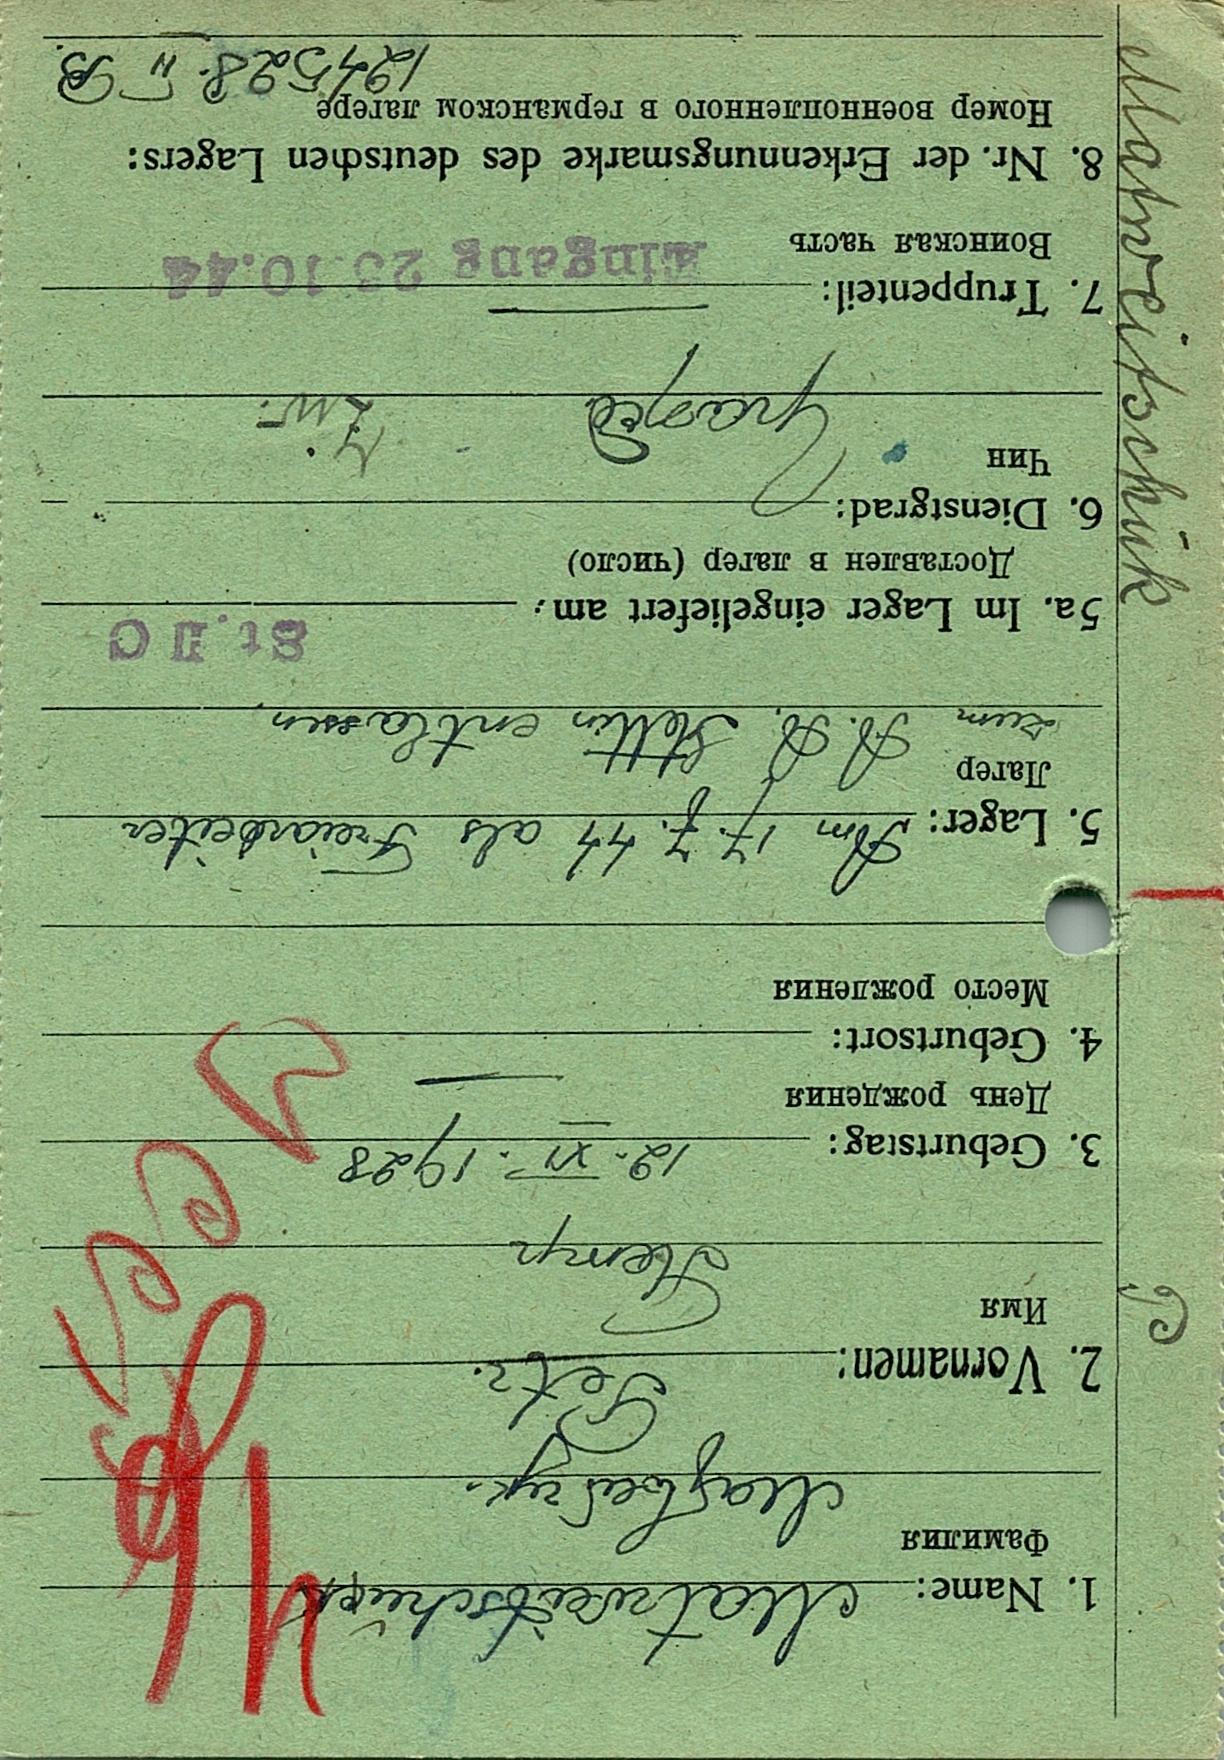 Matweitschük
P
1. Name: Matweitschük
Фамилия
Матвейчук.
2. Vornamen: Petr.
Имя
Петр
3. Geburtstag: 12. XI. 1928
День рождения
4. Geburtsort: —
Место рождения
5. Lager: Am 17.7.44 als Freiarbeiter
Лагер
zum A. A. Stettin entlassen,
St. II C
5a. Im Lager eingeliefert am:
Доставлен в лагер (число)
6. Dienstgrad:
Чин
Ziv.
7. Truppenteil: —
Воинская часть
Eingang 23 10.44
8. Nr. der Erkennungsmarke des deutschen Lagers:
Номер военнопленного в германском лагере
124528. II B.